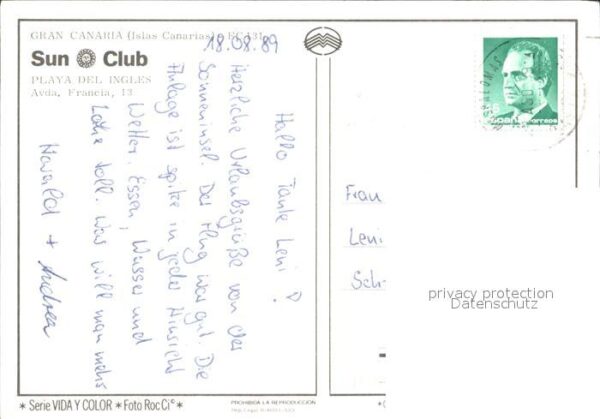 GRAN CANARIA (Islas Canarias)
Sun Club
PLAYA DEL INGLES
Avda, Francia, 13
18.08.89
Hallo Tante Leni!
Herzliche Urlaubsgrüße von der
Sonneninsel. Der Flug war gut. Die
Anlage ist spitze in jeder Hinsicht
Wetter, Essen, Wasser und
Leute toll. Was will man mehr
Harald + Andrea
España correos
Frau
Leni
Sch
privacy protection
Datenschutz
✶ Serie VIDA Y COLOR ✶ Foto Roc Ci© ✶
PROHIBIDA LA REPRODUCCION